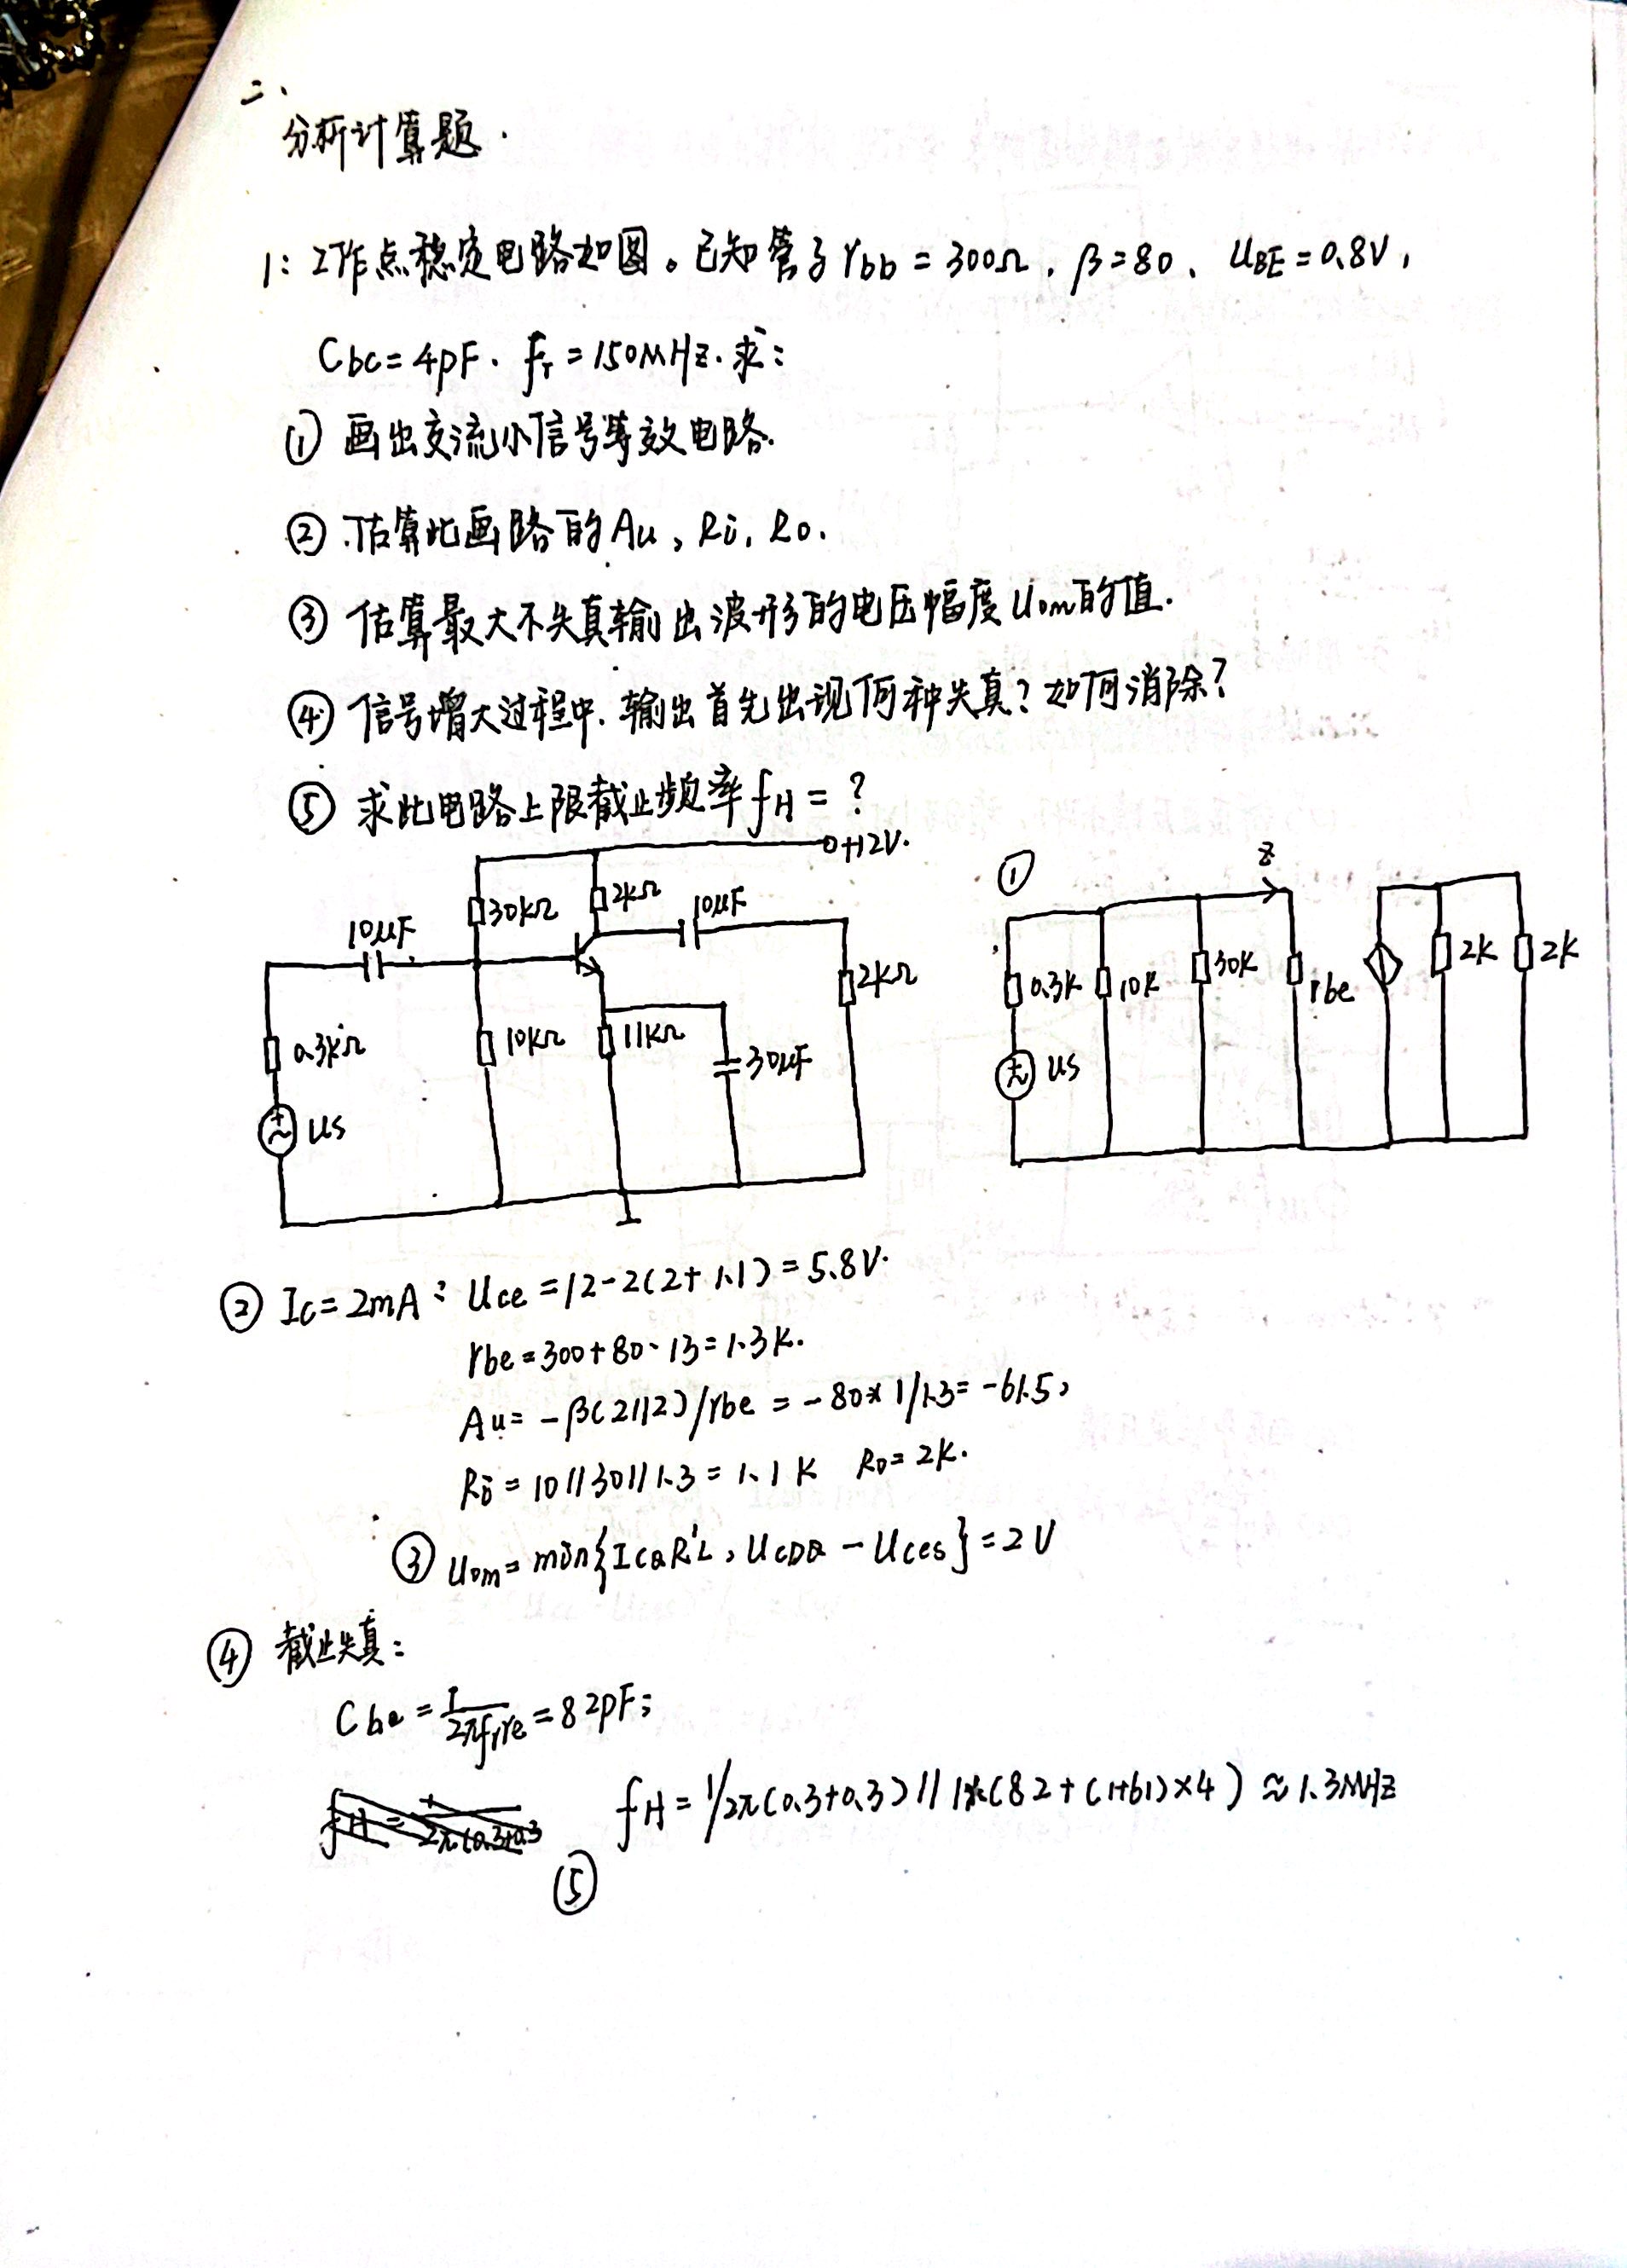 二、
分析计算题.
1: 工作点稳定电路如图。已知管子 rbb = 300Ω, β=80、 UBE = 0.8V,
Cbc = 4pF. fT = 150MHz. 求:
① 画出交流小信号等效电路.
② 估算此画路的Au, Ri, Ro.
③ 估算最大不失真输出波形的电压幅度Uom的值.
④ 信号增大过程中. 输出首先出现何种失真? 如何消除?
⑤ 求此电路上限截止频率fH = ?
+12V.
30kΩ 2kΩ 10μF
10μF
2kΩ
0.3kΩ 10kΩ 11kΩ 30μF
us
①
0.3k 10k 30k rbe 2k 2k
us
② Ic = 2mA : Uce = 12-2(2+1.1) = 5.8V.
rbe = 300+80·13 = 1.3k.
Au = -β(2||2)/rbe = -80*1/1.3 = -61.5,
Ri = 10||30||1.3 = 1.1k Ro = 2k.
③ Uom = min{ICQR'L, UCDQ - Uces} = 2V
④ 截止失真:
Cbe = 1/2πfTre = 82pF;
fH = 1/2π(0.3+0.3)||1*(82+(1+61)×4) ≈ 1.3MHz
⑤